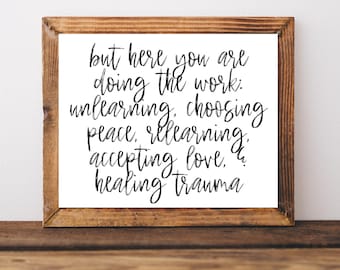 but here you are
doing the work:
unlearning, choosing
peace, relearning,
accepting love, &
healing trauma